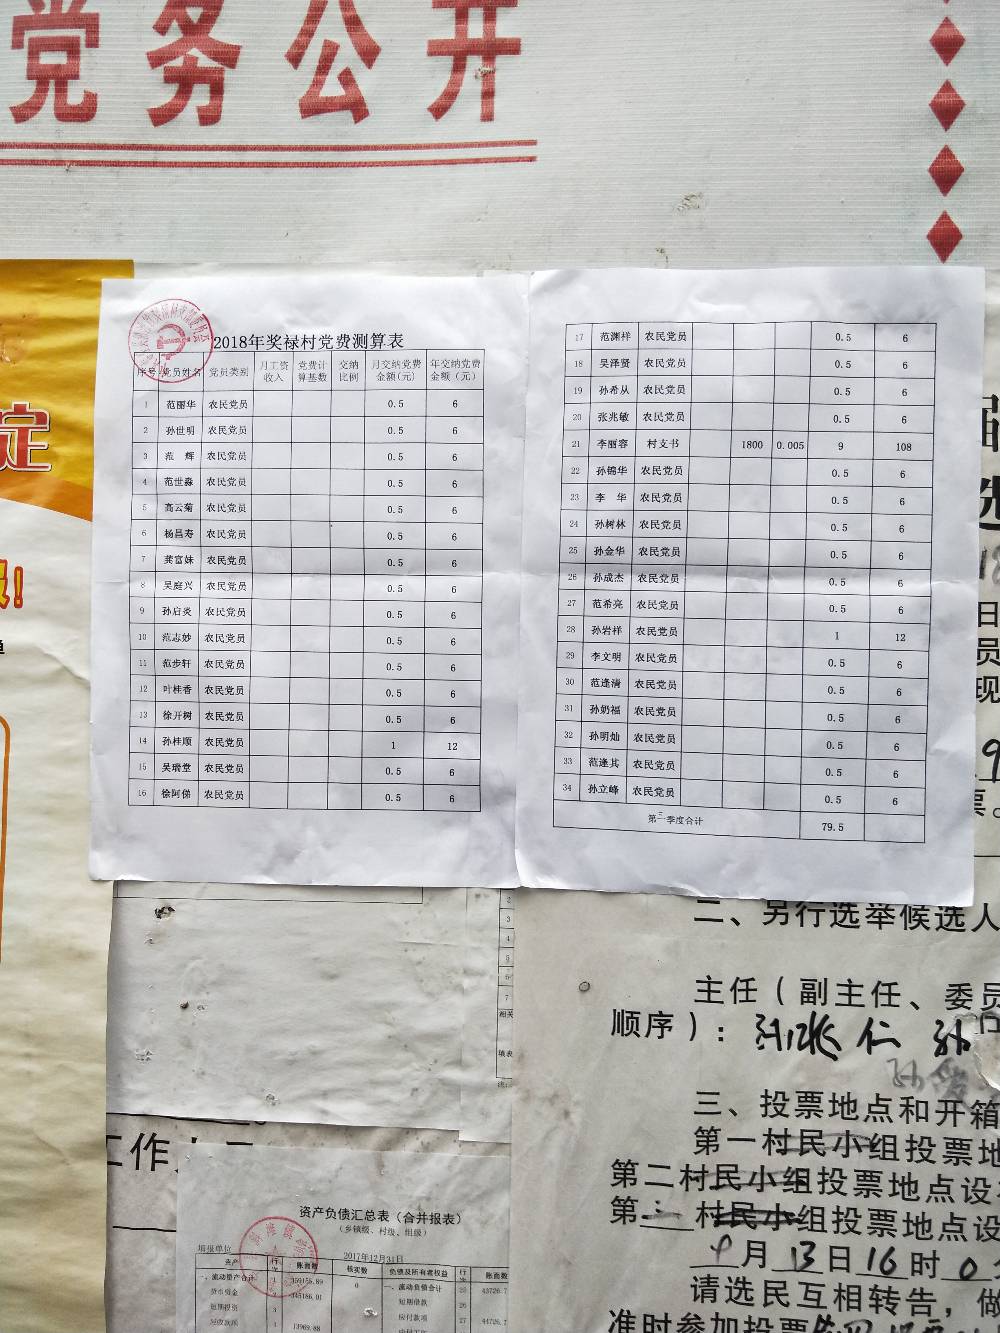 党务公开
2018年奖禄村党费测算表
序号 党员姓名 党员类别 月工资收入 党费计算基数 交纳比例 月交纳党费金额(元) 年交纳党费金额(元)
1 范丽华 农民党员 0.5 6
2 孙世明 农民党员 0.5 6
3 范 辉 农民党员 0.5 6
4 范世淼 农民党员 0.5 6
5 高云菊 农民党员 0.5 6
6 杨昌寿 农民党员 0.5 6
7 龚富妹 农民党员 0.5 6
8 吴庭兴 农民党员 0.5 6
9 孙启炎 农民党员 0.5 6
10 范志妙 农民党员 0.5 6
11 范步轩 农民党员 0.5 6
12 叶桂香 农民党员 0.5 6
13 徐开树 农民党员 0.5 6
14 孙桂顺 农民党员 1 12
15 吴瑞堂 农民党员 0.5 6
16 徐阿俤 农民党员 0.5 6
17 范渊祥 农民党员 0.5 6
18 吴泽贤 农民党员 0.5 6
19 孙希从 农民党员 0.5 6
20 张兆敏 农民党员 0.5 6
21 李丽容 村支书 1800 0.005 9 108
22 孙锦华 农民党员 0.5 6
23 李 华 农民党员 0.5 6
24 孙树林 农民党员 0.5 6
25 孙金华 农民党员 0.5 6
26 孙成杰 农民党员 0.5 6
27 范希亮 农民党员 0.5 6
28 孙岩祥 农民党员 1 12
29 李文明 农民党员 0.5 6
30 范逢清 农民党员 0.5 6
31 孙奶福 农民党员 0.5 6
32 孙明灿 农民党员 0.5 6
33 范逢其 农民党员 0.5 6
34 孙立峰 农民党员 0.5 6
第三季度合计 79.5
定
二、另行选举候选人
主任（副主任、委员
顺序）：
三、投票地点和开箱
第一村民小组投票地
第二村民小组投票地点设
第三村民小组投票地点设
月13日16时0
请选民互相转告，做
准时参加投票
工作
资产负债汇总表（合并报表）
（乡镇级、村级、组级）
填报单位 2017年12月31日
资产 行次 账面数 核实数 负债及所有者权益 行次 账面数
一、流动资产合计 1 359155.89 0 一、流动负债合计 25 43726.7
货币资金 2 345186.01 短期借款 26
短期投资 3 应付款项 27 44726.7
应收款项 4 13969.88